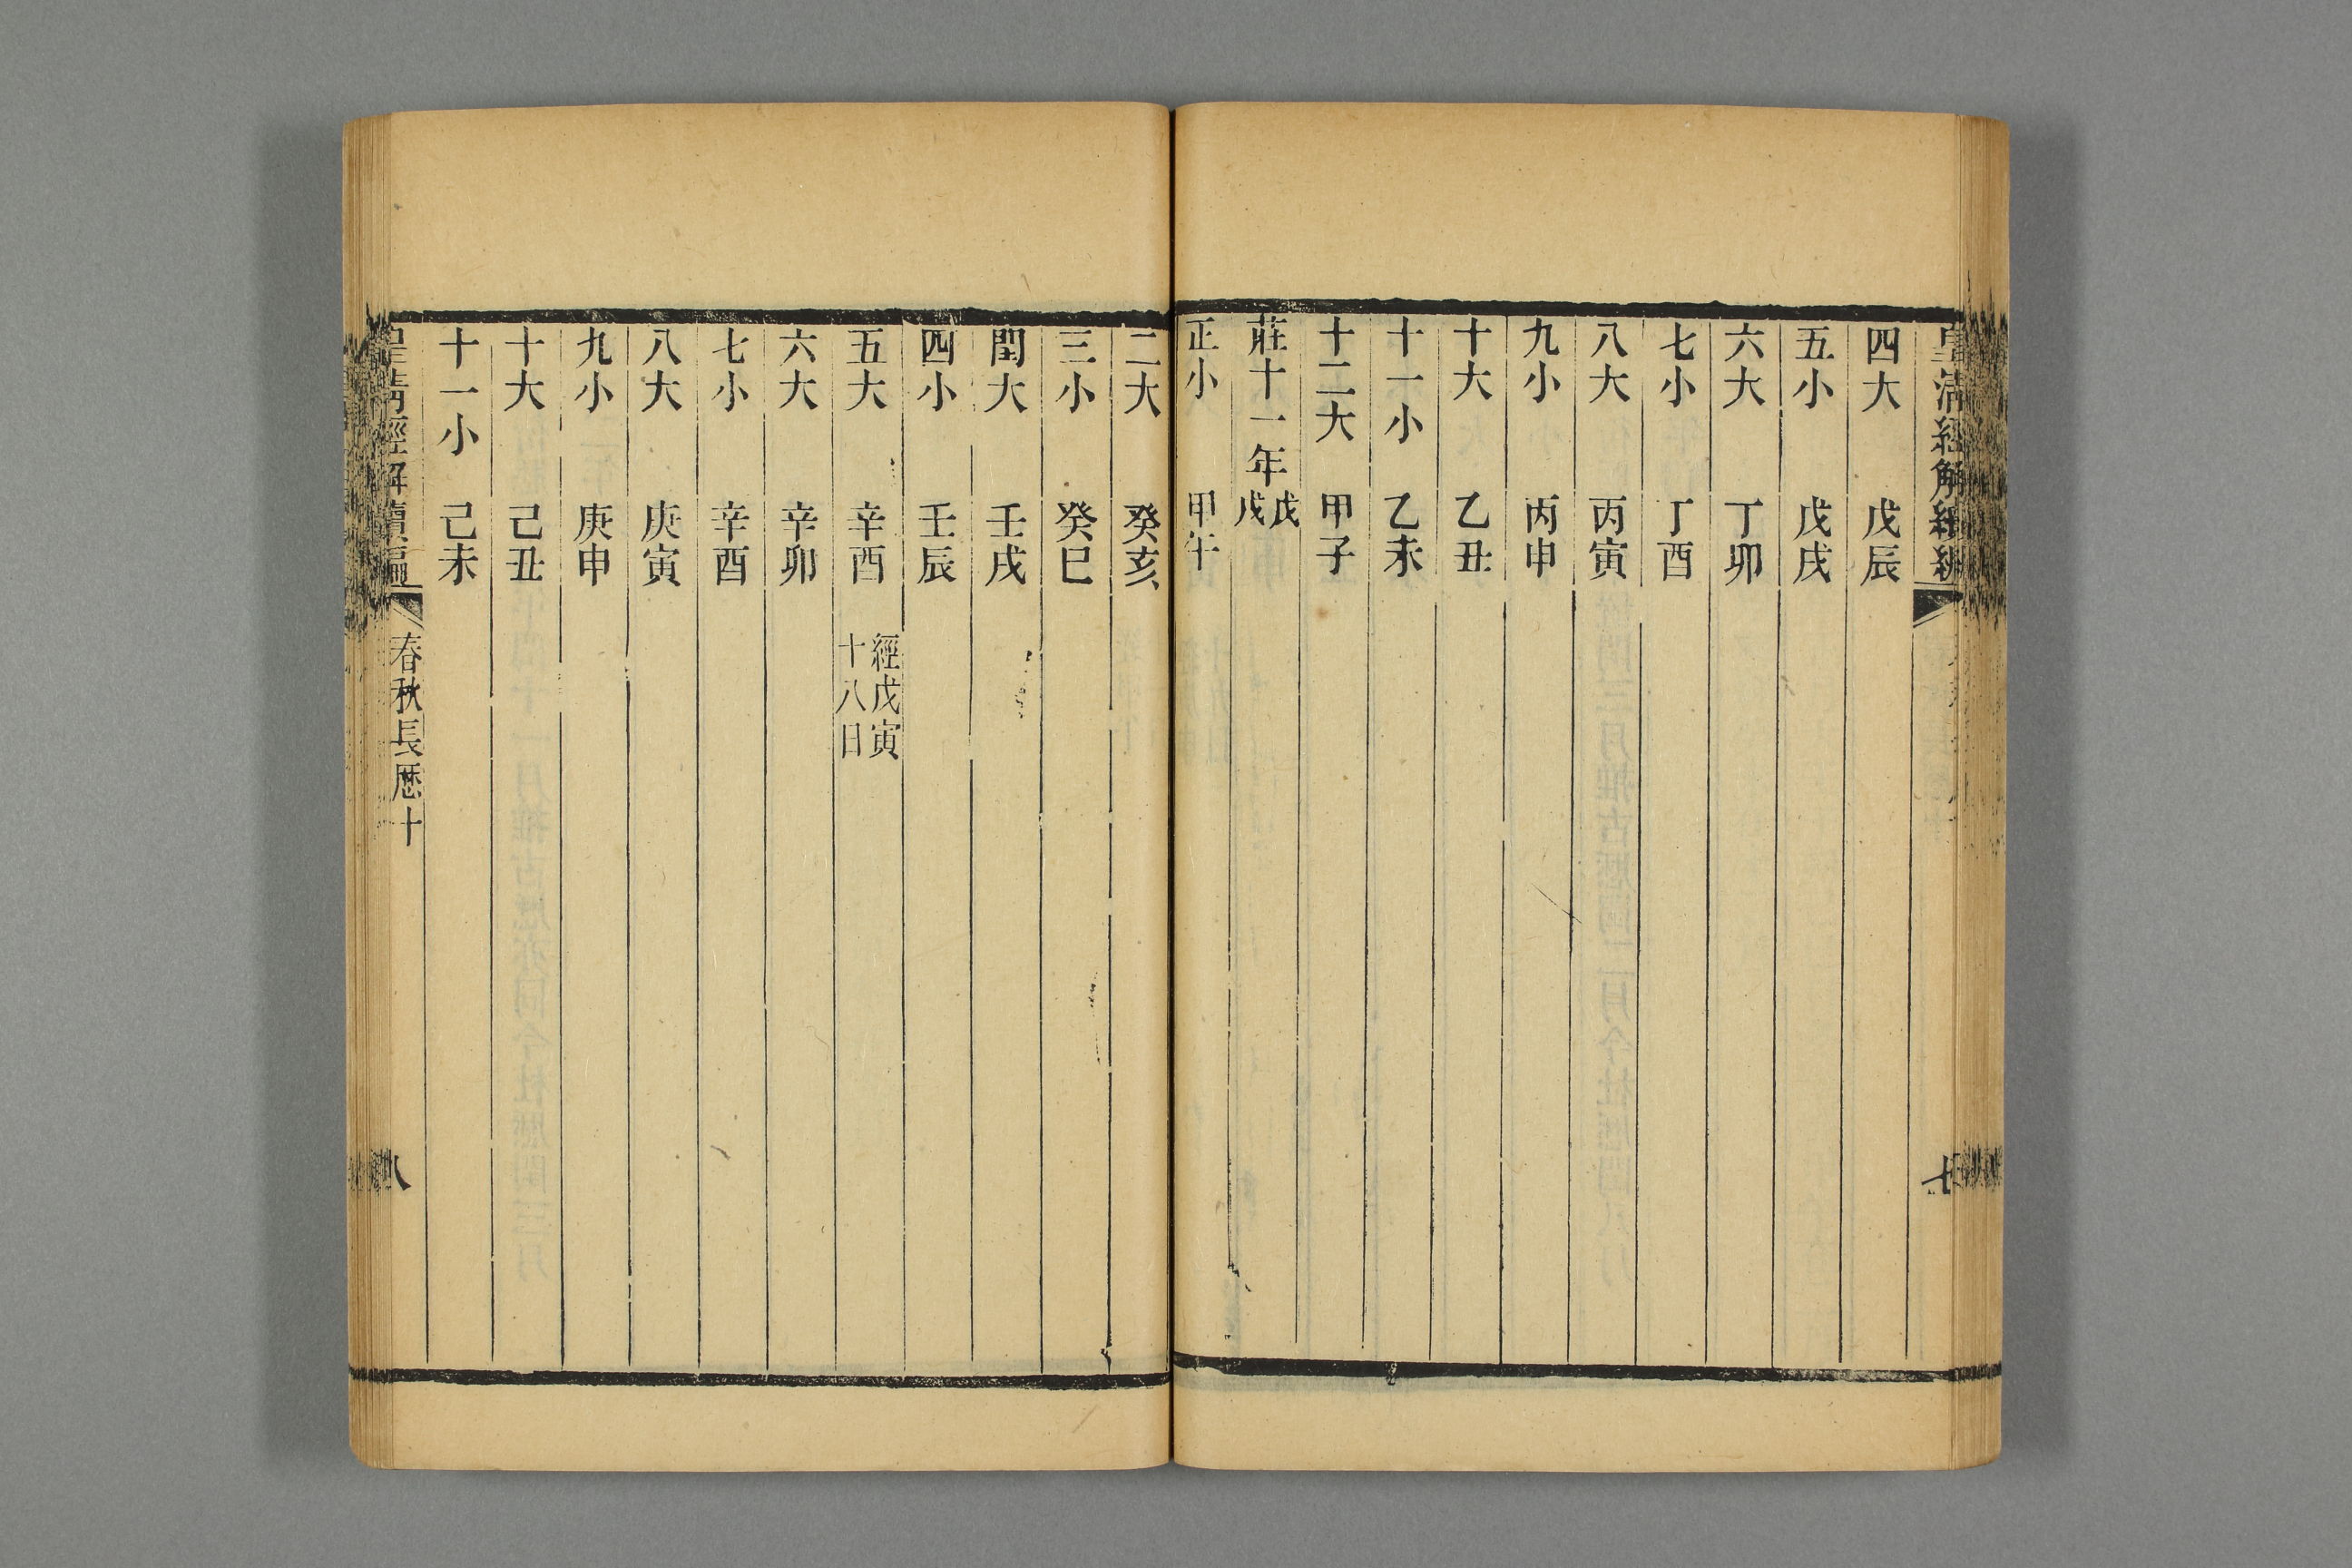 四大 戊辰
五小 戊戌
六大 丁卯
七小 丁酉
八大 丙寅
九小 丙申
十大 乙丑
十一小 乙未
十二大 甲子
莊十一年 戊戌
正小 甲午
二大 癸亥
三小 癸巳
閏大 壬戌
四小 壬辰
五大 辛酉 經戊寅
十八日
六大 辛卯
七小 辛酉
八大 庚寅
九小 庚申
十大 己丑
十一小 己未
皇清經解續編 春秋長厯十 八